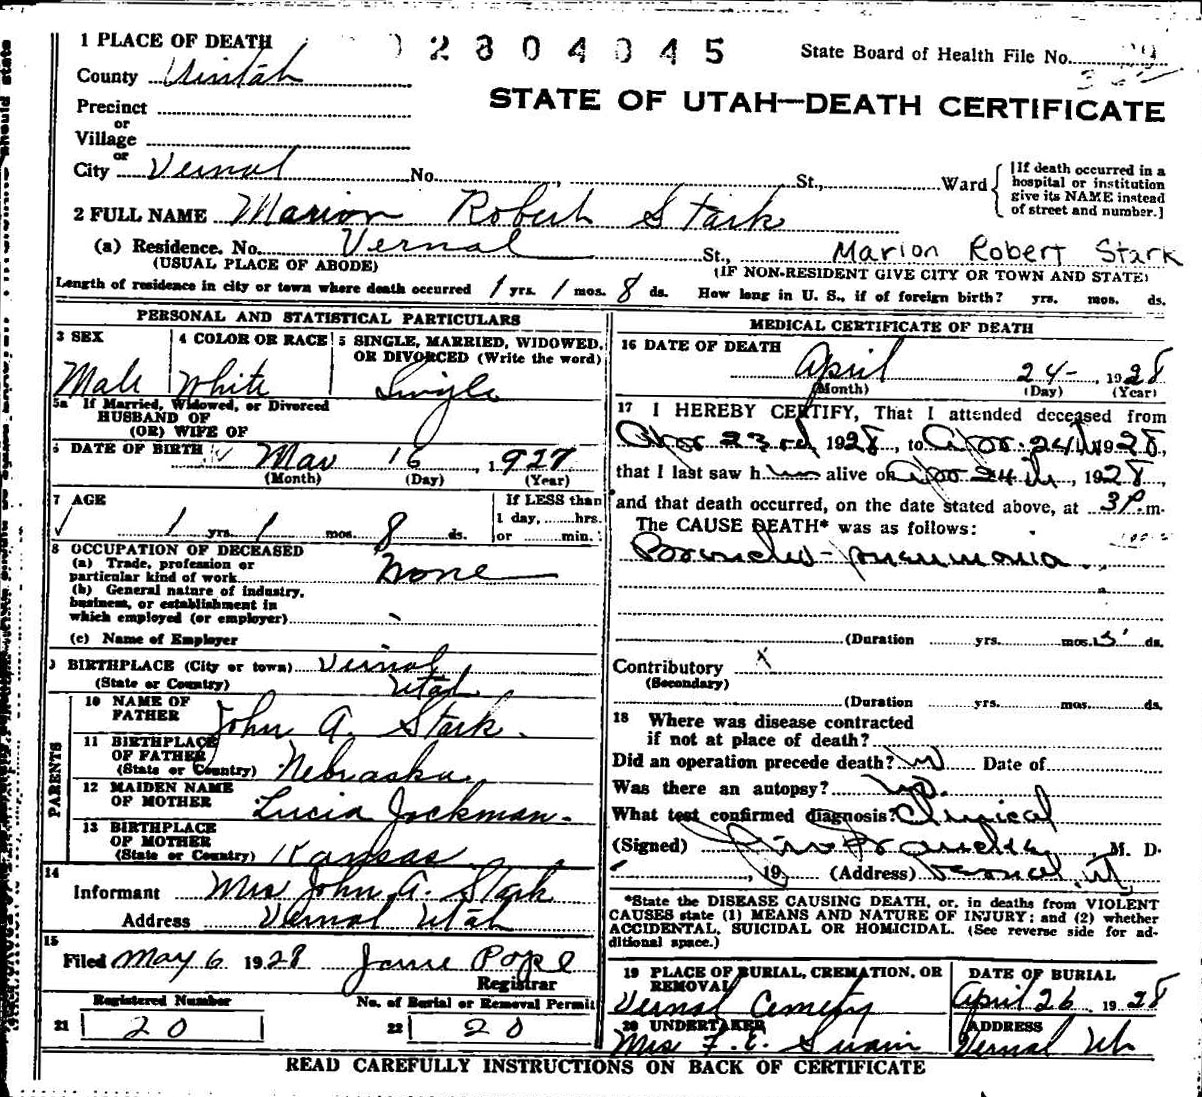 1 PLACE OF DEATH 2804045 State Board of Health File No.
County Uintah
STATE OF UTAH—DEATH CERTIFICATE
Precinct
or
Village
or
City Vernal No. St., Ward
[If death occurred in a
hospital or institution
give its NAME instead
of street and number.]
2 FULL NAME Marion Robert Stark
(a) Residence. No. Vernal St., Marion Robert Stark
(USUAL PLACE OF ABODE) (IF NON-RESIDENT GIVE CITY OR TOWN AND STATE)
Length of residence in city or town where death occurred 1 yrs. 1 mos. 8 ds. How long in U. S., if of foreign birth? yrs. mos. ds.
PERSONAL AND STATISTICAL PARTICULARS
3 SEX 4 COLOR OR RACE 5 SINGLE, MARRIED, WIDOWED,
OR DIVORCED (Write the word)
Male White Single
5a If Married, Widowed, or Divorced
HUSBAND OF
(OR) WIFE OF
6 DATE OF BIRTH Mar 16, 1927
(Month) (Day) (Year)
7 AGE If LESS than
1 day, hrs.
1 yrs. 1 mos. 8 ds. or min.
8 OCCUPATION OF DECEASED
(a) Trade, profession or
particular kind of work None
(b) General nature of industry,
business, or establishment in
which employed (or employer)
(c) Name of Employer
9 BIRTHPLACE (City or town) Vernal
(State or Country) Utah
PARENTS
10 NAME OF
FATHER John A. Stark.
11 BIRTHPLACE
OF FATHER
(State or Country) Nebraska
12 MAIDEN NAME
OF MOTHER Lucia Jackman.
13 BIRTHPLACE
OF MOTHER
(State or Country) Kansas
14
Informant Mrs John A. Stark
Address Vernal Utah
15
Filed May 6 1928 Jame Pope
Registrar
Registered Number No. of Burial or Removal Permit
21 20 22 20
MEDICAL CERTIFICATE OF DEATH
16 DATE OF DEATH
April 24-, 1928
(Month) (Day) (Year)
17 I HEREBY CERTIFY, That I attended deceased from
Apr 23rd 1928, to Apr. 24th 1928,
that I last saw him alive on Apr 24th, 1928,
and that death occurred, on the date stated above, at 3P.m.
The CAUSE DEATH* was as follows:
Broncho-pneumonia.
(Duration yrs. mos. 5 ds.
Contributory X
(Secondary)
(Duration yrs. mos. ds.
18 Where was disease contracted
if not at place of death?
Did an operation precede death? no Date of
Was there an autopsy? no.
What test confirmed diagnosis? Clinical
(Signed) , M. D.
, 19 (Address) Vernal, Ut
*State the DISEASE CAUSING DEATH, or, in deaths from VIOLENT
CAUSES state (1) MEANS AND NATURE OF INJURY; and (2) whether
ACCIDENTAL, SUICIDAL OR HOMICIDAL. (See reverse side for ad-
ditional space.)
19 PLACE OF BURIAL, CREMATION, OR
REMOVAL DATE OF BURIAL
Vernal Cemetry April 26 1928
20 UNDERTAKER ADDRESS
Mrs F. E. Swain Vernal Ut
READ CAREFULLY INSTRUCTIONS ON BACK OF CERTIFICATE